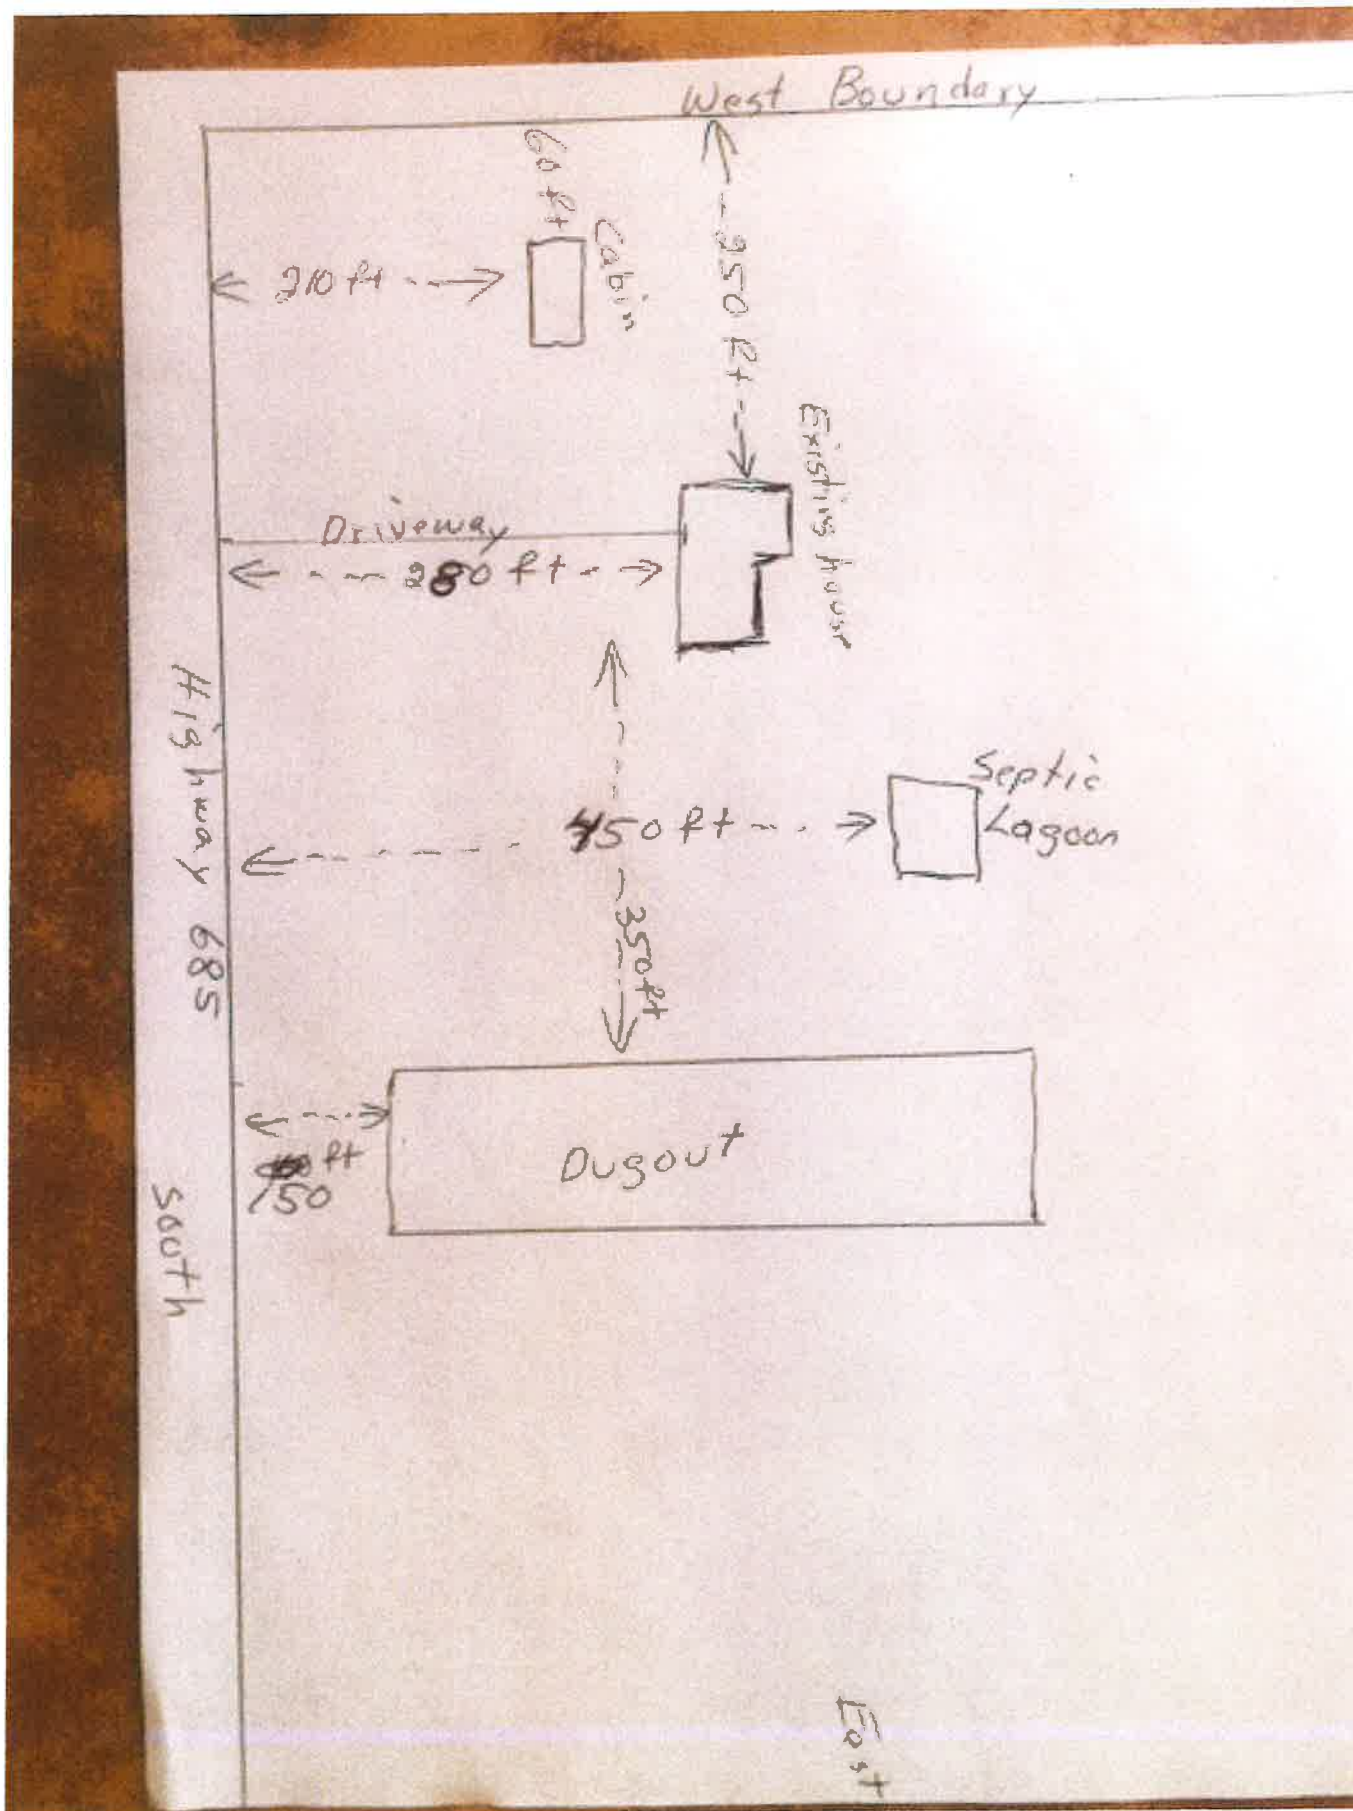 West Boundary
60 ft
Cabin
210 ft
ft
Existing house
Driveway
280 ft
Highway 685
450 ft
Septic
Lagoon
350 ft
ft
150
Dugout
South
East